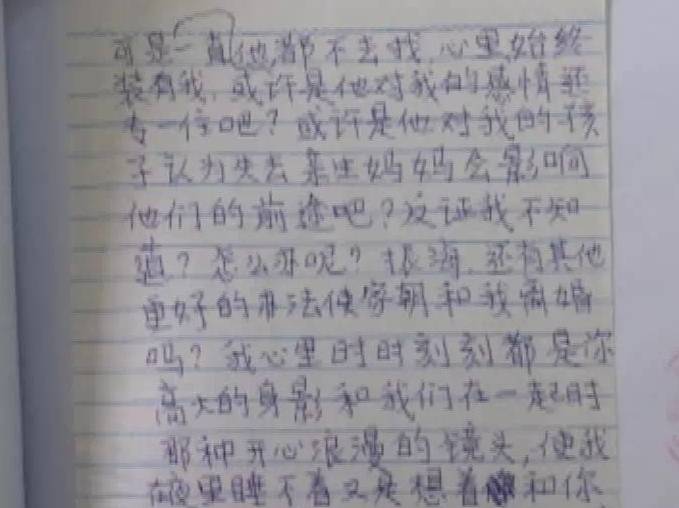 可是一直他都不去找,心里始终
装有我,或许是他对我的感情还
专一位吧?或许是他对我的孩
子认为失去亲生妈妈会影响
他们的前途吧?这证我不知
道?怎么办呢?振海,还有其他
更好的办法使家朝和我离婚
吗?我心里时时刻刻都是你
高大的身影和我们在一起时
那种开心浪漫的镜头,使我
在夜里睡不着又是想着和你